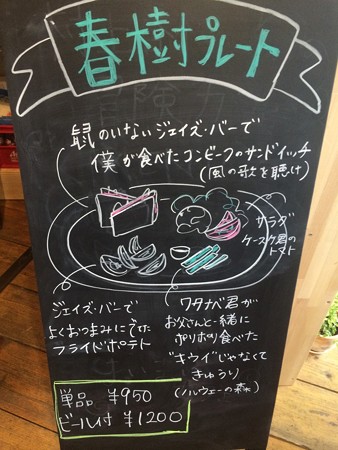 春樹プレート
鼠のいないジェイズ・バーで
僕が食べたコンビーフのサンドイッチ
(風の歌を聴け)
サラダ
ケースケ君の
トマト
ジェイズ・バーで
よくおつまみにでた
フライドポテト
ワタナベ君が
お父さんと一緒に
ポリポリ食べた
"キウイ"じゃなくて
きゅうり
(ノルウェーの森)
単品 ¥950
ビール付 ¥1200